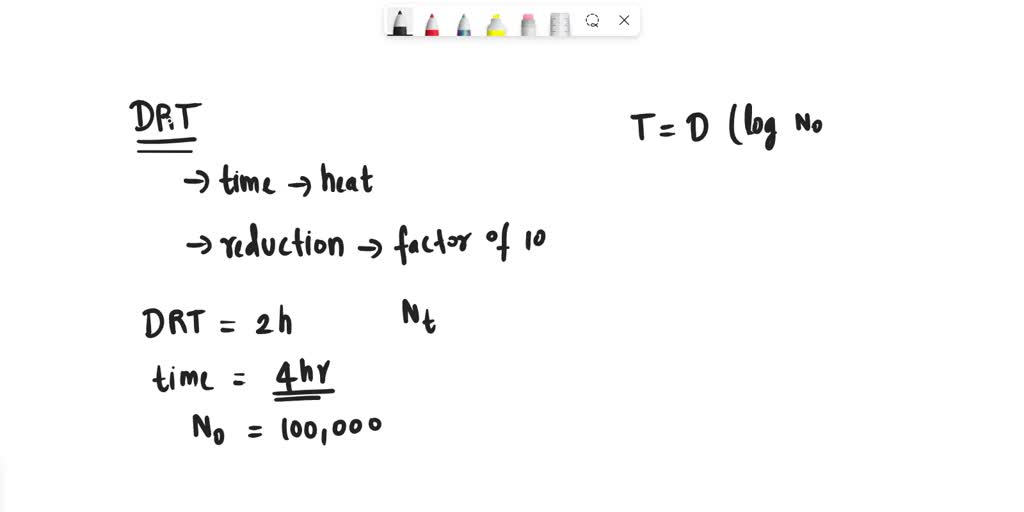 DRT
→ time → heat
→ reduction → factor of 10
DRT = 2h
Nt
time = 4hr
N0 = 100,000
T = D (log N0